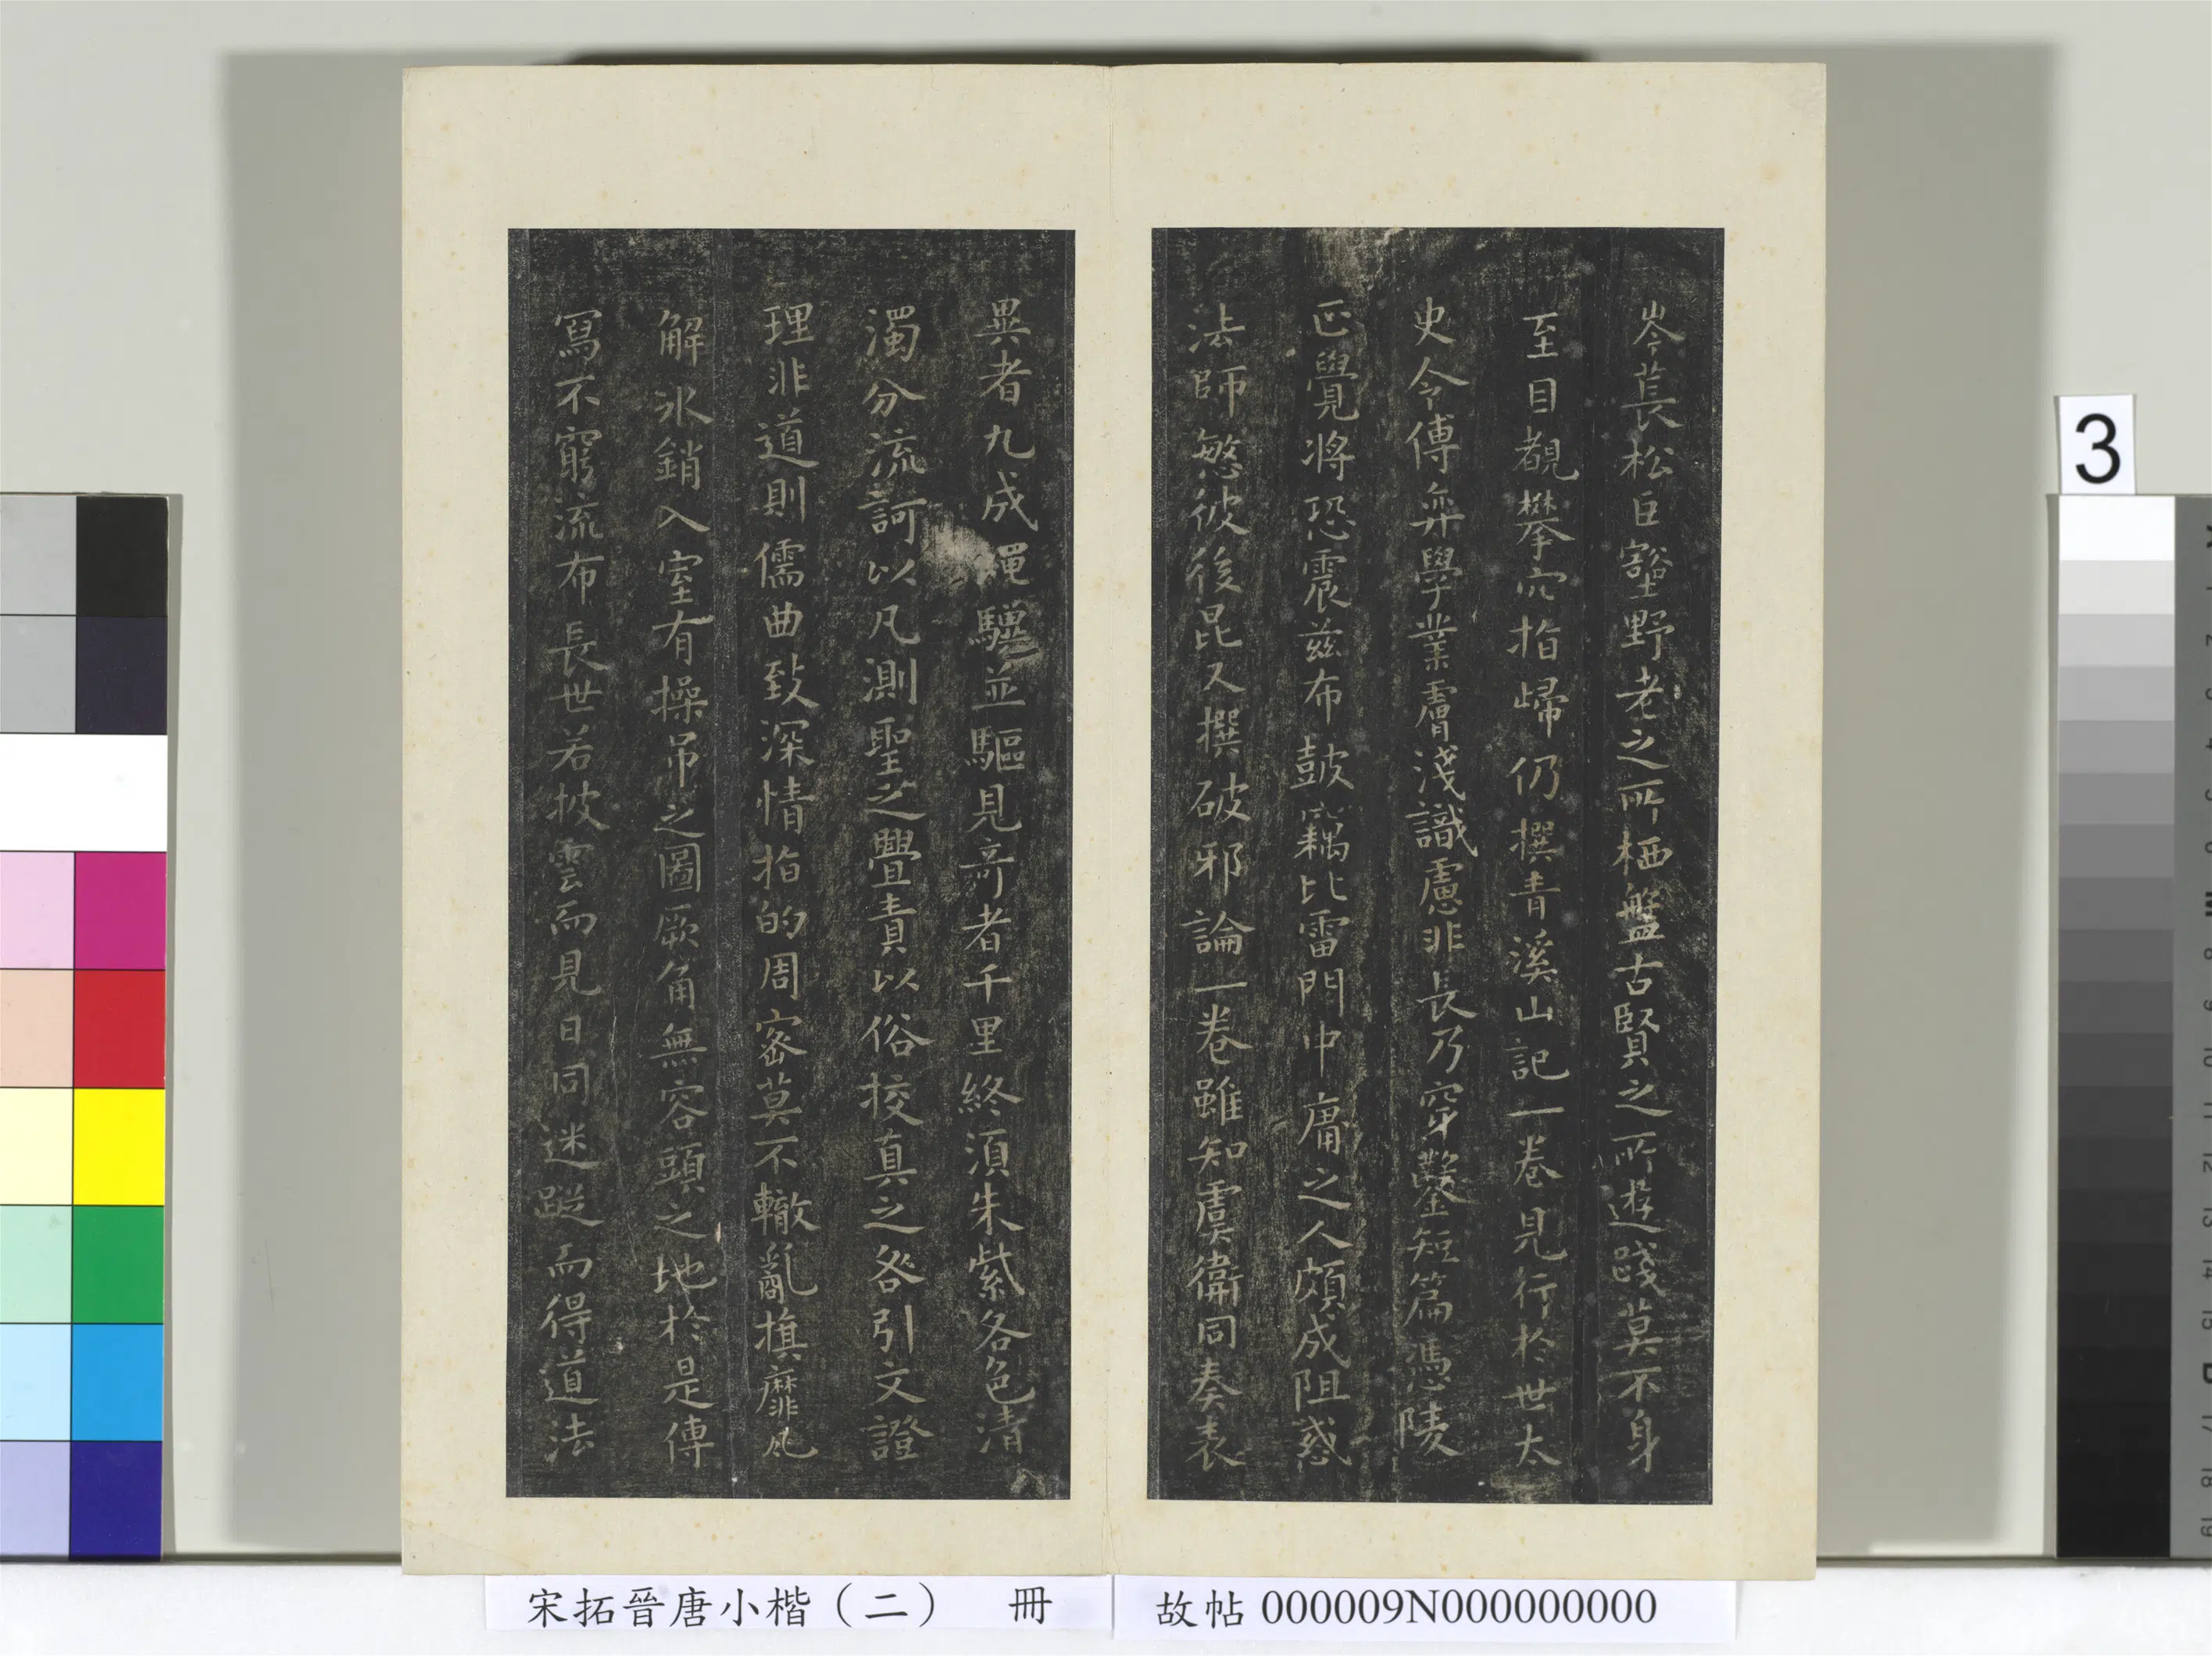 岑萇松巨壑野老之所栖盤古賢之所遊踐莫不身
至目覩攀穴指歸仍撰青溪山記一卷見行於世太
史令傅弈學業膚淺識慮非長乃穿鑿短篇憑陵
正覺將恐震茲布鼓竊比雷門中庸之人頗成阻惑
法師愍彼後昆又撰破邪論一卷雖知虞衛同奏表
異者九成蠅驥並驅見奇者千里終須朱紫各色清
濁分流訶以凡測聖之舋責以俗挍真之咎引文證
理非道則儒曲致深情指的周密莫不轍亂旗靡風
解氷銷入室有操吊之圖厥角無容頭之地於是傳
寫不窮流布長世若披雲而見日同迷蹤而得道法
宋拓晉唐小楷(二) 冊
故帖000009N000000000
3